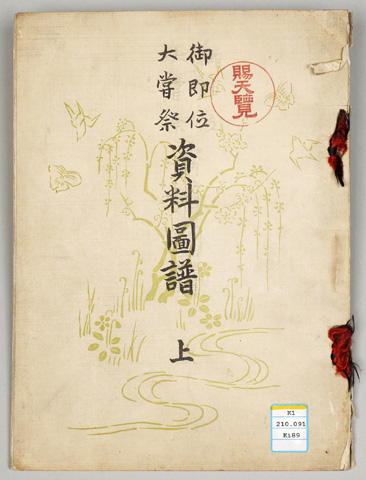 賜天覽
御即位
大嘗祭
資料圖譜
上
K1
210.091
Ki89